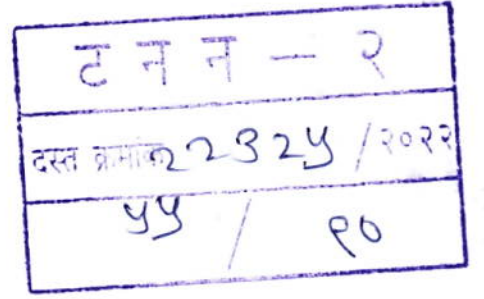 ट न न - २
दस्त क्रमांक २२३२५ / २०२२
५५ / ९०